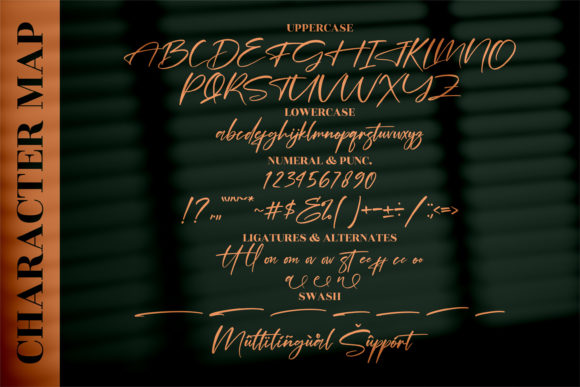 CHARACTER MAP
UPPERCASE
ABCDEFGHIJKLMNO
PQRSTUVWXYZ
LOWERCASE
abcdefghijklmnopqrstuvwxyz
NUMERAL & PUNC.
1234567890
!?.,,""''""*~#$&%()+-±÷/:;,<=>
LIGATURES & ALTERNATES
on om or ow st ee ff cc oo
SWASH
Müttitíñgùål Šûppört